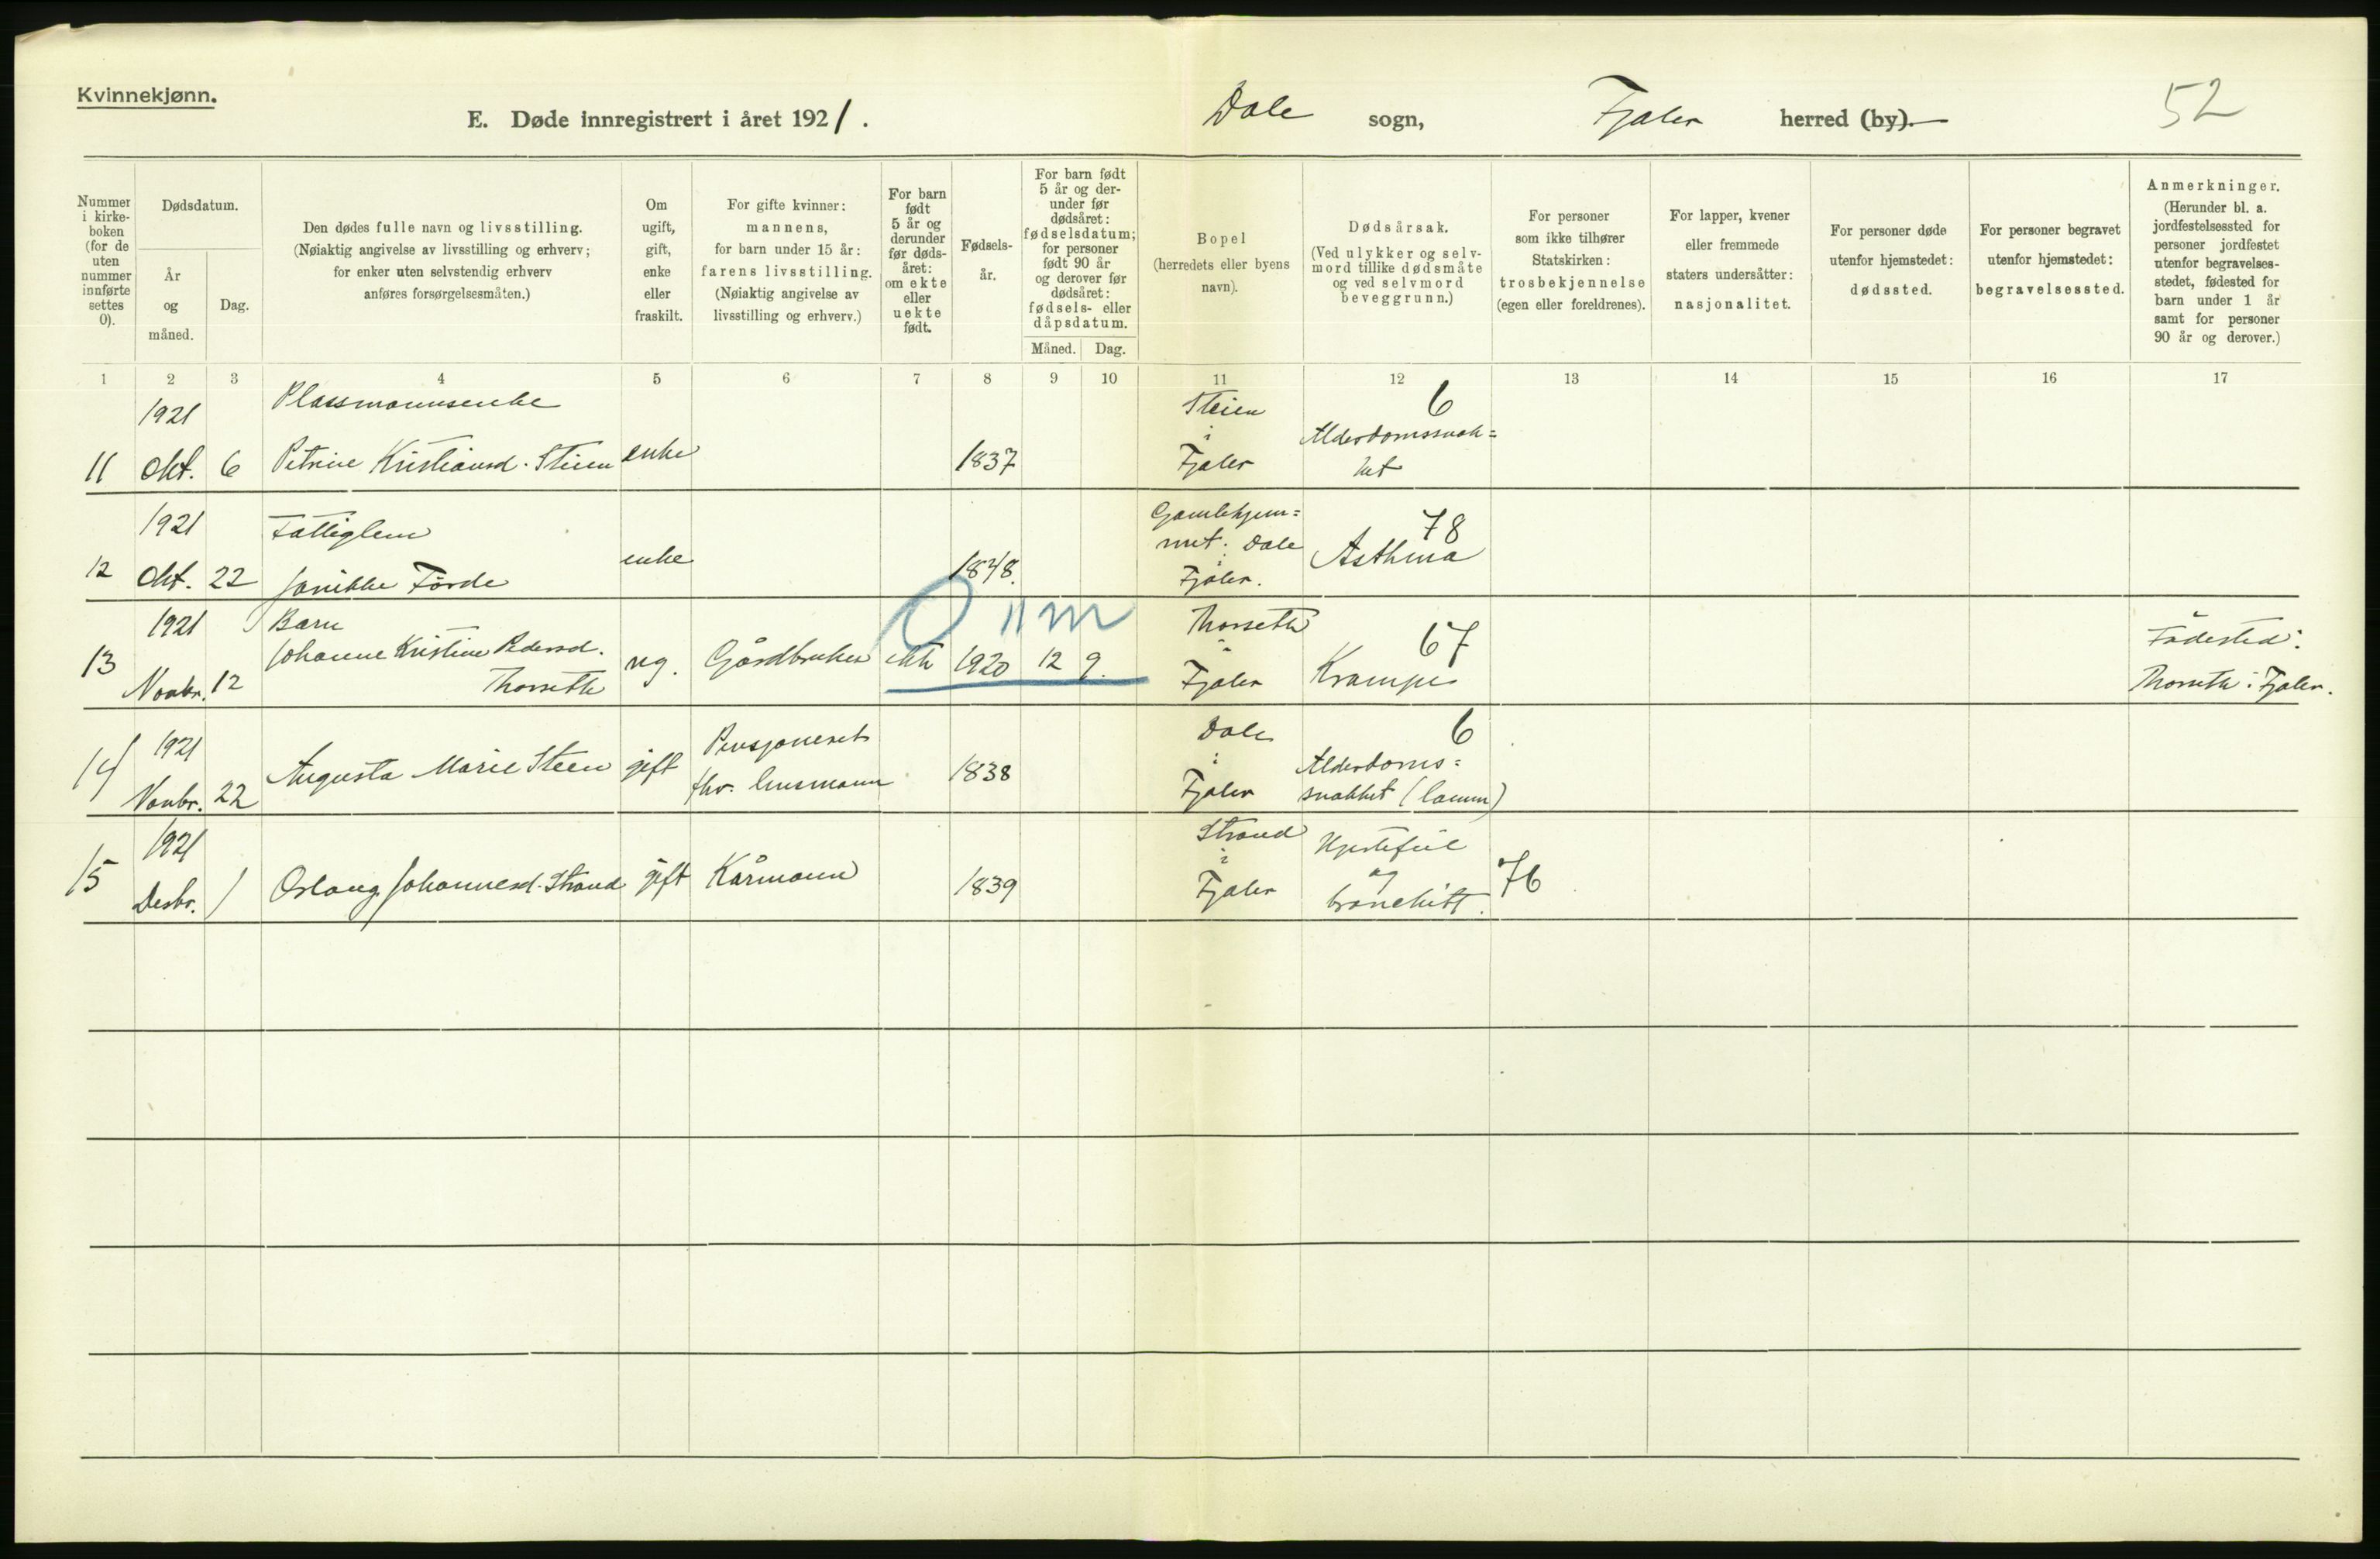 Kvinnekjønn.
E. Døde innregistrert i året 1921. Dale sogn, Fjaler herred (by). 52
Nummer i kirke- boken (for de uten nummer innførte settes 0).
Dødsdatum.
År og måned.
Dag.
Den dødes fulle navn og livsstilling.
(Nøiaktig angivelse av livsstilling og erhverv;
for enker uten selvstendig erhverv
anføres forsørgelsesmåten.)
Om ugift, gift, enke eller fraskilt.
For gifte kvinner:
mannens,
for barn under 15 år:
farens livsstilling.
(Nøiaktig angivelse av
livsstilling og erhverv.)
For barn født 5 år og derunder før døds- året: om ekte eller uekte født.
Fødsels- år.
For barn født 5 år og der- under før dødsåret: fødselsdatum; for personer født 90 år og derover før dødsåret: fødsels- eller dåpsdatum.
Måned. Dag.
Bopel
(herredets eller byens
navn).
Dødsårsak.
(Ved ulykker og selv-
mord tillike dødsmåte
og ved selvmord
beveggrunn.)
For personer
som ikke tilhører
Statskirken:
trosbekjennelse
(egen eller foreldrenes).
For lapper, kvener
eller fremmede
staters undersåtter:
nasjonalitet.
For personer døde
utenfor hjemstedet:
dødssted.
For personer begravet
utenfor hjemstedet:
begravelsessted.
Anmerkninger.
(Herunder bl. a.
jordfestelsessted for
personer jordfestet
utenfor begravelses-
stedet, fødested for
barn under 1 år
samt for personer
90 år og derover.)
1 2 3 4 5 6 7 8 9 10 11 12 13 14 15 16 17
1921 Plassmannsenke Steien 6
i Alderdomssvak=
11 Okt. 6 Petrine Kristiansd. Steien enke 1837 Fjaler het
1921 Fattiglem Gamlehjem= 78
enke met. Dale Asthma
i
12 Okt. 22 Janikke Förde 1848. Fjaler.
0 11 m
1921 Barn Thorseth 67 Födested:
13 Johanne Kristine Pedersd. ug. Gårdbruker ekte 1920 12 9. i
Novbr. 12 Thorseth Fjaler Krampe Thorseth i Fjaler.
1921 Pensjonert Dale 6
14 Augusta Marie Steen gift 1838 i Alderdoms=
Novbr. 22 fhv. lensmann Fjaler svakhet (lamm)
1921 Strand Hjertefeil
15 Oslaug Johannesd. Strand gift Kårmann 1839 i og 76
Desbr. 1 Fjaler bronchitt.